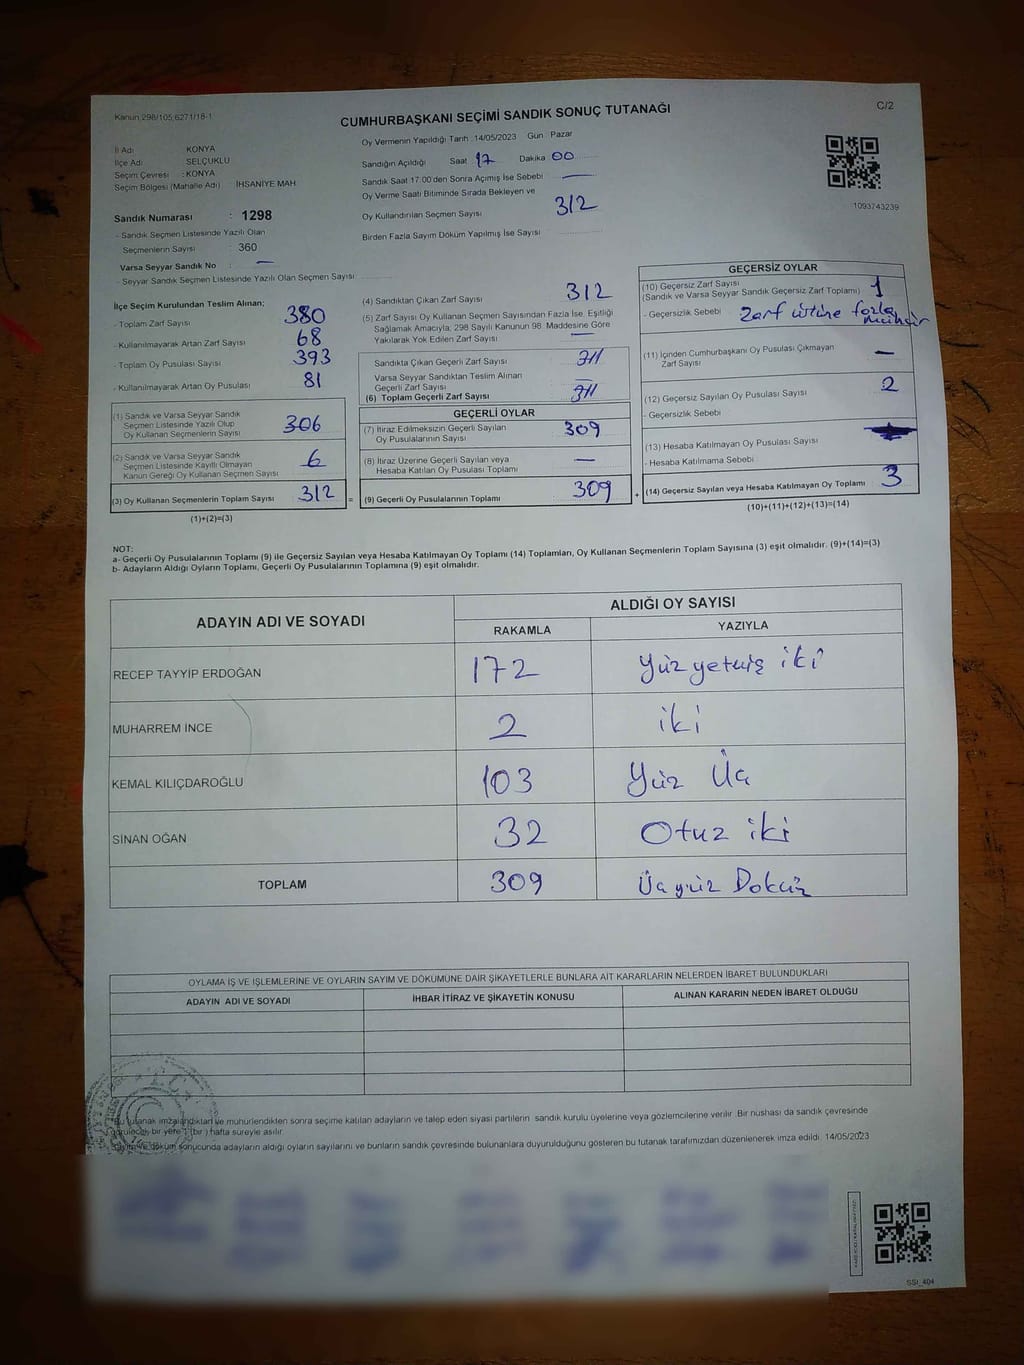 Kanun 298/105,6271/18-1
CUMHURBAŞKANI SEÇİMİ SANDIK SONUÇ TUTANAĞI
C/2
İl Adı KONYA
İlçe Adı SELÇUKLU
Seçim Çevresi : KONYA
Seçim Bölgesi (Mahalle Adı) İHSANİYE MAH
Sandık Numarası : 1298
- Sandık Seçmen Listesinde Yazılı Olan
Seçmenlerin Sayısı : 360
Varsa Seyyar Sandık No : —
- Seyyar Sandık Seçmen Listesinde Yazılı Olan Seçmen Sayısı
Oy Vermenin Yapıldığı Tarih : 14/05/2023 Gün : Pazar
Sandığın Açıldığı Saat 17 Dakika 00
Sandık Saat 17:00'den Sonra Açılmış İse Sebebi —
Oy Verme Saati Bitiminde Sırada Bekleyen ve
Oy Kullandırılan Seçmen Sayısı 312
Birden Fazla Sayım Döküm Yapılmış İse Sayısı
1093743239
İlçe Seçim Kurulundan Teslim Alınan;
- Toplam Zarf Sayısı 380
- Kullanılmayarak Artan Zarf Sayısı 68
- Toplam Oy Pusulası Sayısı 393
- Kullanılmayarak Artan Oy Pusulası 81
(1) Sandık ve Varsa Seyyar Sandık
Seçmen Listesinde Yazılı Olup
Oy Kullanan Seçmenlerin Sayısı 306
(2) Sandık ve Varsa Seyyar Sandık
Seçmen Listesinde Kayıtlı Olmayan
Kanun Gereği Oy Kullanan Seçmen Sayısı 6
(3) Oy Kullanan Seçmenlerin Toplam Sayısı 312
(1)+(2)=(3)
=
(4) Sandıktan Çıkan Zarf Sayısı 312
(5) Zarf Sayısı Oy Kullanan Seçmen Sayısından Fazla İse, Eşitliği
Sağlamak Amacıyla, 298 Sayılı Kanunun 98. Maddesine Göre
Yakılarak Yok Edilen Zarf Sayısı —
Sandıkta Çıkan Geçerli Zarf Sayısı 311
Varsa Seyyar Sandıktan Teslim Alınan
Geçerli Zarf Sayısı
(6) Toplam Geçerli Zarf Sayısı 311
GEÇERLİ OYLAR
(7) İtiraz Edilmeksizin Geçerli Sayılan
Oy Pusulalarının Sayısı 309
(8) İtiraz Üzerine Geçerli Sayılan veya
Hesaba Katılan Oy Pusulası Toplamı —
(9) Geçerli Oy Pusulalarının Toplamı 309
+
GEÇERSİZ OYLAR
(10) Geçersiz Zarf Sayısı
(Sandık ve Varsa Seyyar Sandık Geçersiz Zarf Toplamı) 1
- Geçersizlik Sebebi : Zarf üstüne fazla
mühür
(11) İçinden Cumhurbaşkanı Oy Pusulası Çıkmayan
Zarf Sayısı —
(12) Geçersiz Sayılan Oy Pusulası Sayısı 2
- Geçersizlik Sebebi
(13) Hesaba Katılmayan Oy Pusulası Sayısı
- Hesaba Katılmama Sebebi
(14) Geçersiz Sayılan veya Hesaba Katılmayan Oy Toplamı 3
(10)+(11)+(12)+(13)=(14)
NOT:
a- Geçerli Oy Pusulalarının Toplamı (9) ile Geçersiz Sayılan veya Hesaba Katılmayan Oy Toplamı (14) Toplamları, Oy Kullanan Seçmenlerin Toplam Sayısına (3) eşit olmalıdır. (9)+(14)=(3)
b- Adayların Aldığı Oyların Toplamı, Geçerli Oy Pusulalarının Toplamına (9) eşit olmalıdır.
ADAYIN ADI VE SOYADI
ALDIĞI OY SAYISI
RAKAMLA YAZIYLA
RECEP TAYYİP ERDOĞAN 172 Yüz yetmiş iki
MUHARREM İNCE 2 iki
KEMAL KILIÇDAROĞLU 103 Yüz Üç
SİNAN OĞAN 32 Otuz iki
TOPLAM 309 Üçyüz Dokuz
OYLAMA İŞ VE İŞLEMLERİNE VE OYLARIN SAYIM VE DÖKÜMÜNE DAİR ŞİKAYETLERLE BUNLARA AİT KARARLARIN NELERDEN İBARET BULUNDUKLARI
ADAYIN ADI VE SOYADI İHBAR İTİRAZ VE ŞİKAYETİN KONUSU ALINAN KARARIN NEDEN İBARET OLDUĞU
T.C.
Bu tutanak imzalandıktan ve mühürlendikten sonra seçime katılan adayların ve talep eden siyasi partilerin sandık kurulu üyelerine veya gözlemcilerine verilir. Bir nüshası da sandık çevresinde
görülecek bir yere 1 (bir) hafta süreyle asılır.
Sayım ve döküm sonucunda adayların aldığı oyların sayılarını ve bunların sandık çevresinde bulunanlara duyurulduğunu gösteren bu tutanak tarafımızdan düzenlenerek imza edildi. 14/05/2023
SSİ_404